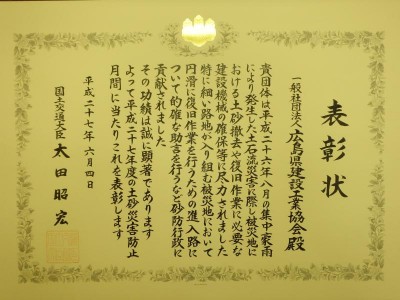 表彰状
一般社団法人広島県建設工業協会殿
貴団体は平成二十六年八月の集中豪雨
により発生した土石流災害に際し被災地に
おける土砂撤去や復旧作業に必要な
建設機械の確保等に尽力されました
特に細い路地が入り組む被災地において
円滑に復旧作業を行うための進入路に
ついて的確な助言を行うなど砂防行政に
貢献されました
その功績は誠に顕著であります
よって平成二十七年度の土砂災害防止
月間に当たりこれを表彰します
平成二十七年六月四日
国土交通大臣 太田昭宏